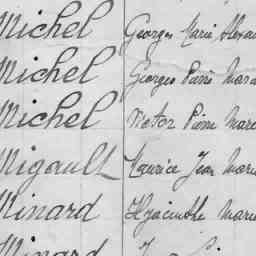 Michel Georges Marie Alexan
Michel Georges Pierre Marie
Michel Victor Pierre Marie
Migault Maurice Jean Marie
Minard Hyacinthe Marie
Minard